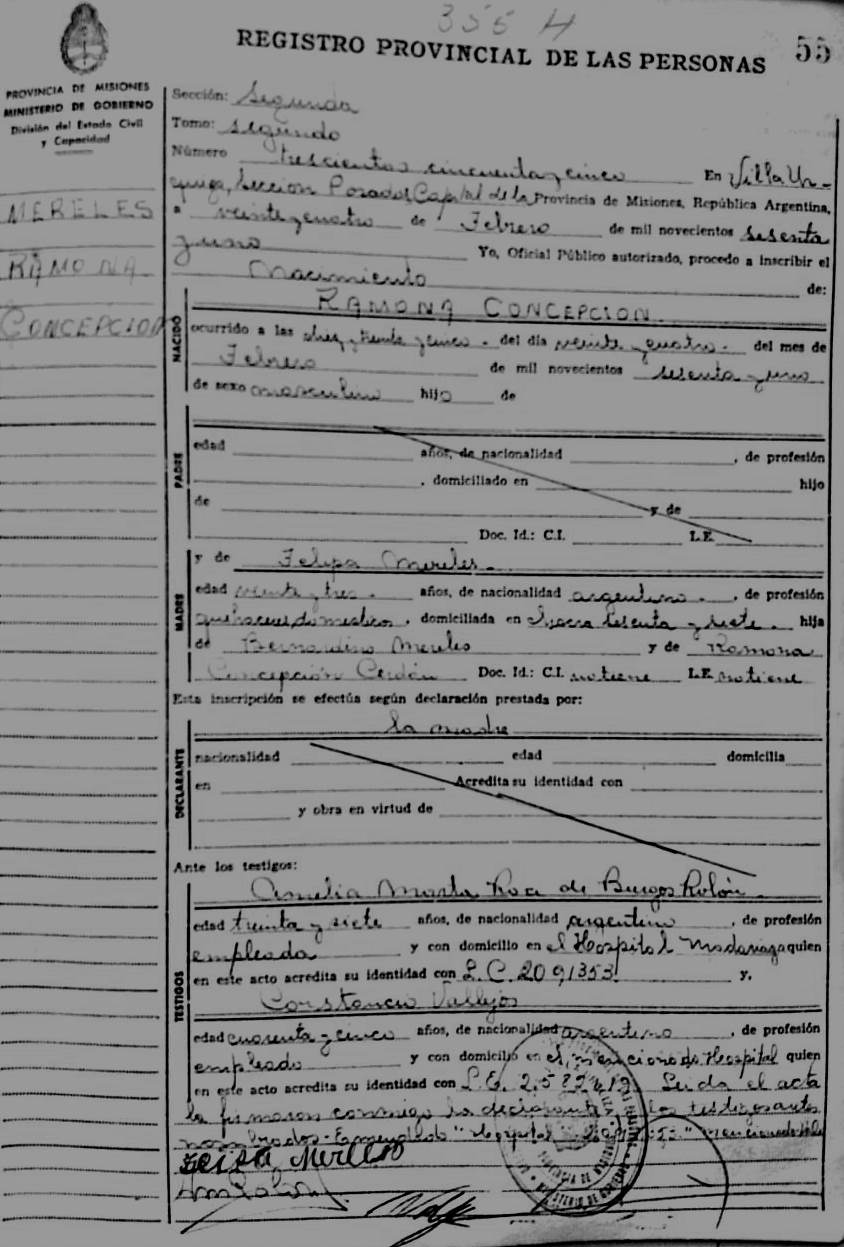 355 H
REGISTRO PROVINCIAL DE LAS PERSONAS 55
PROVINCIA DE MISIONES
MINISTERIO DE GOBIERNO
División del Estado Civil
y Capacidad
MERELES
RAMONA
CONCEPCION
Sección: Segunda
Tomo: segundo
Número trescientos cincuenta y cinco En Villa Ur-
quiza, Seccion Posadas Capital de la Provincia de Misiones, República Argentina,
a veinte y cuatro de Febrero de mil novecientos sesenta
y uno Yo, Oficial Público autorizado, procedo a inscribir el
Nacimiento de:
NACIDO
RAMONA CONCEPCION.
ocurrido a las diez y treinta y cinco. del día veinte y cuatro. del mes de
Febrero de mil novecientos sesenta y uno
de sexo masculino hijo de
PADRE
edad años, de nacionalidad , de profesión
, domiciliado en hijo
de y de
Doc. Id.: C.I. L.E.
MADRE
y de Felipa Mereles.
edad veinte y tres. años, de nacionalidad argentina. , de profesión
quehaceres domesticos , domiciliada en Chacra sesenta y siete. hija
de Bernardino Mereles y de Ramona
Concepción Cerdán Doc. Id.: C.I. no tiene L.E. no tiene
Esta inscripción se efectúa según declaración prestada por:
la madre
DECLARANTE
nacionalidad edad domicilia
en Acredita su identidad con
y obra en virtud de
Ante los testigos:
TESTIGOS
Amelia Marta Roa de Burgos Rolón.
edad treinta y siete años, de nacionalidad argentino , de profesión
empleada y con domicilio en el Hospital Madariaga quien
en este acto acredita su identidad con L.C. 2091353 y,
Constancio Vallejos
edad cuarenta y cinco años, de nacionalidad argentino , de profesión
empleado y con domicilio en el mencionado Hospital quien
en este acto acredita su identidad con L.E. Leida el acta
la firmaron conmigo la declarante y los testigos antes
nombrados- Enmendado "Hospital